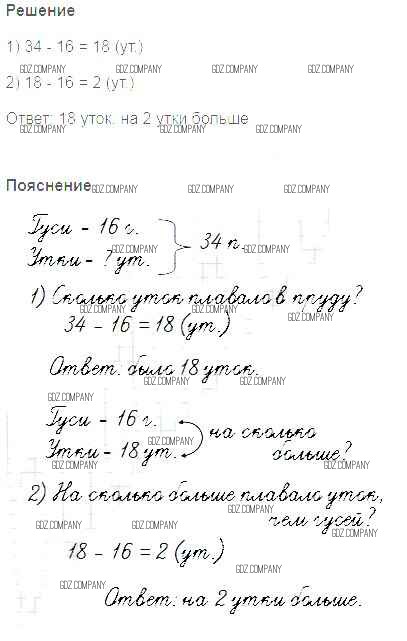 Решение
1) 34 - 16 = 18 (ут.)
GDZ.COMPANY GDZ.COMPANY GDZ.COMPANY GDZ.COMPANY
2) 18 - 16 = 2 (ут.)
Ответ: 18 уток. на 2 утки больше
GDZ.COMPANY GDZ.COMPANY GDZ.COMPANY GDZ.COMPANY
Пояснение GDZ.COMPANY GDZ.COMPANY GDZ.COMPANY
Гуси - 16 г.
34 п. GDZ.COMPANY
GDZ.COMPANY
Утки - ? ут.
1) Сколько уток плавало в пруду?
GDZ.COMPANY GDZ.COMPANY GDZ.COMPANY
34 - 16 = 18 (ут.)
GDZ.COMPANY
Ответ: было 18 уток.
GDZ.COMPANY GDZ.COMPANY GDZ.COMPANY
GDZ.COMPANY
Гуси - 16 г.
на сколько
GDZ.COMPANY
Утки - 18 ут.
больше?
GDZ.COMPANY GDZ.COMPANY GDZ.COMPANY
2) На сколько больше плавало уток,
GDZ.COMPANY
чем гусей?
GDZ.COMPANY GDZ.COMPANY GDZ.COMPANY GDZ.COMPANY
18 - 16 = 2 (ут.)
GDZ.COMPANY
GDZ.COMPANY
Ответ: на 2 утки больше.